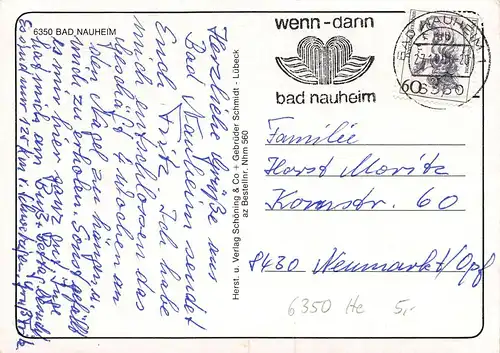 6350 BAD NAUHEIM
Herzliche Grüße aus
Bad Nauheim sendet
Euch Fritz. Ich habe
mich entschlossen das
Geschäft 4 Wochen an
den Nagel zu hängen
und zu erholen. Sonst gefällt
es mir hier ganz gut.
Es sind nur 125 km
Herst. u. Verlag Schöning & Co + Gebrüder Schmidt - Lübeck
az Bestellnr. Nhm 560
wenn-dann
bad nauheim
BAD NAUHEIM 1
6350
60
Familie
Horst Moritz
Kornstr. 60
8430 Neumarkt/Opf
6350 He 5,-